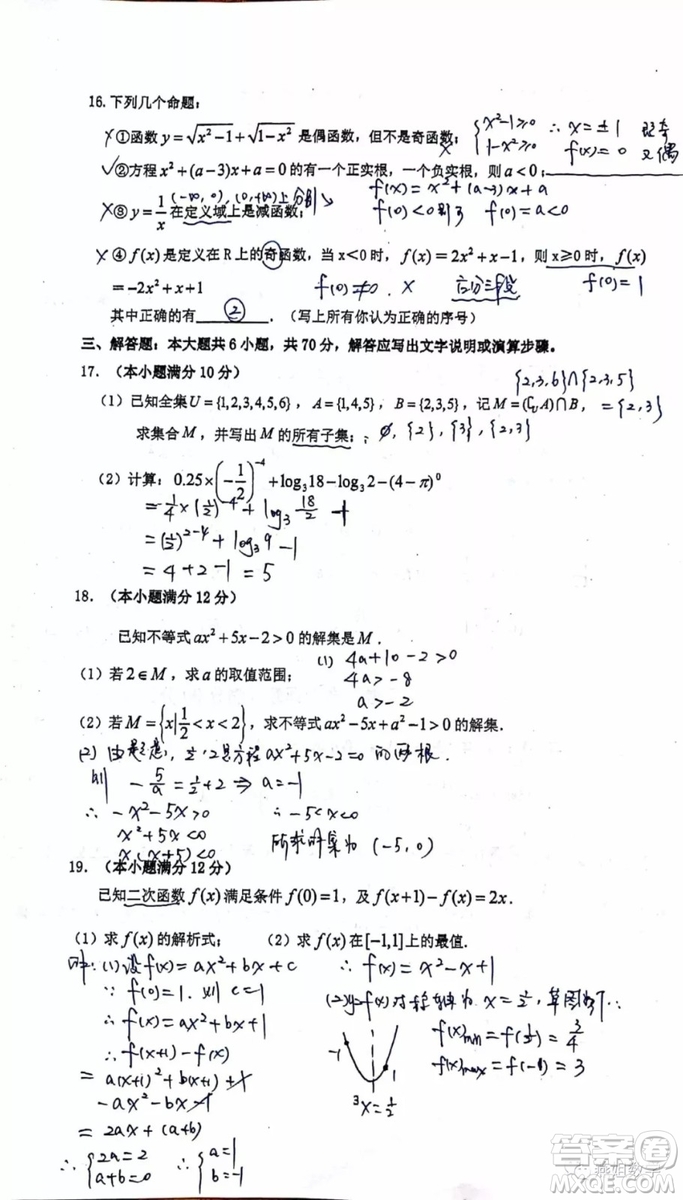 16.下列几个命题：
×①函数 y=√(x²-1)+√(1-x²) 是偶函数，但不是奇函数； × {x²-1≥0 1-x²≥0 ∴ x=±1 既奇
f(x)=0 又偶
√②方程 x²+(a-3)x+a=0 的有一个正实根，一个负实根，则 a<0；
(-∞,0),(0,+∞)上分别↘ f(x)=x²+(a-3)x+a
×③ y=1/x 在定义域上是减函数； f(0)<0 即可 f(0)=a<0
×④ f(x)是定义在 R 上的奇函数，当 x<0 时，f(x)=2x²+x-1，则 x≥0 时，f(x)
=-2x²+x+1 f(0)≠0. × 应分三段 f(0)=1
其中正确的有 ② ．（写上所有你认为正确的序号）
三、解答题：本大题共 6 小题，共 70 分，解答应写出文字说明或演算步骤。
17．（本小题满分 10 分） {2,3,6}∩{2,3,5}
（1）已知全集U={1,2,3,4,5,6}，A={1,4,5}，B={2,3,5}，记M=(∁UA)∩B， ={2,3}
求集合 M，并写出 M 的所有子集； ∅, {2}, {3}, {2,3}
（2）计算：0.25×(-1/2)⁻⁴+log₃18-log₃2-(4-π)⁰
=1/4×(1/2)⁻⁴+log₃ 18/2 -1
=(1/2)²⁻⁴+log₃9-1
=4+2-1=5
18．（本小题满分 12 分）
已知不等式 ax²+5x-2>0 的解集是 M．
（1）若 2∈M，求 a 的取值范围； (1) 4a+10-2>0
4a>-8
a>-2
（2）若 M={x|1/2<x<2}，求不等式 ax²-5x+a²-1>0 的解集.
(2) 由题意，1/2, 2是方程ax²+5x-2=0 的两根.
则 -5/a=1/2+2 ⇒ a=-1
∴ -x²-5x>0 ∴ -5<x<0
x²+5x<0 所求解集为 (-5,0)
x(x+5)<0
19．（本小题满分 12 分）
已知二次函数 f(x) 满足条件 f(0)=1，及 f(x+1)-f(x)=2x．
（1）求 f(x) 的解析式； （2）求 f(x) 在[-1,1]上的最值.
解: (1) 设f(x)=ax²+bx+c ∴ f(x)=x²-x+1
∵ f(0)=1. 则 c=1 (2) y=f(x) 对称轴为 x=1/2, 草图如下:
∴ f(x)=ax²+bx+1 f(x)min=f(1/2)=3/4
∴ f(x+1)-f(x) -1 1 f(x)max=f(-1)=3
=a(x+1)²+b(x+1)+1
-ax²-bx-1 x=1/2
=2ax+(a+b)
∴ {2a=2 a+b=0 ∴ {a=1 b=-1
答案圈
MXQE.COM